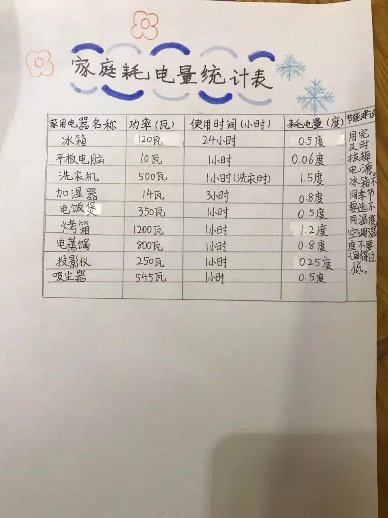 家庭耗电量统计表
家用电器名称 功率(瓦) 使用时间(小时) 耗电量(度)
冰箱 120瓦 24小时 0.5度
平板电脑 10瓦 1小时 0.06度
洗衣机 500瓦 1小时(洗衣时) 1.5度
加湿器 14瓦 3小时 0.8度
电饭煲 350瓦 1小时 0.5度
烤箱 1200瓦 1小时 1.2度
电蒸锅 800瓦 1小时 0.8度
投影仪 250瓦 1小时 0.25度
吸尘器 545瓦 1小时 0.5度
用完
及时
拔掉
电源。
冰箱不
同季节
要选不
同温度
空调温
度不要
调得过
低。